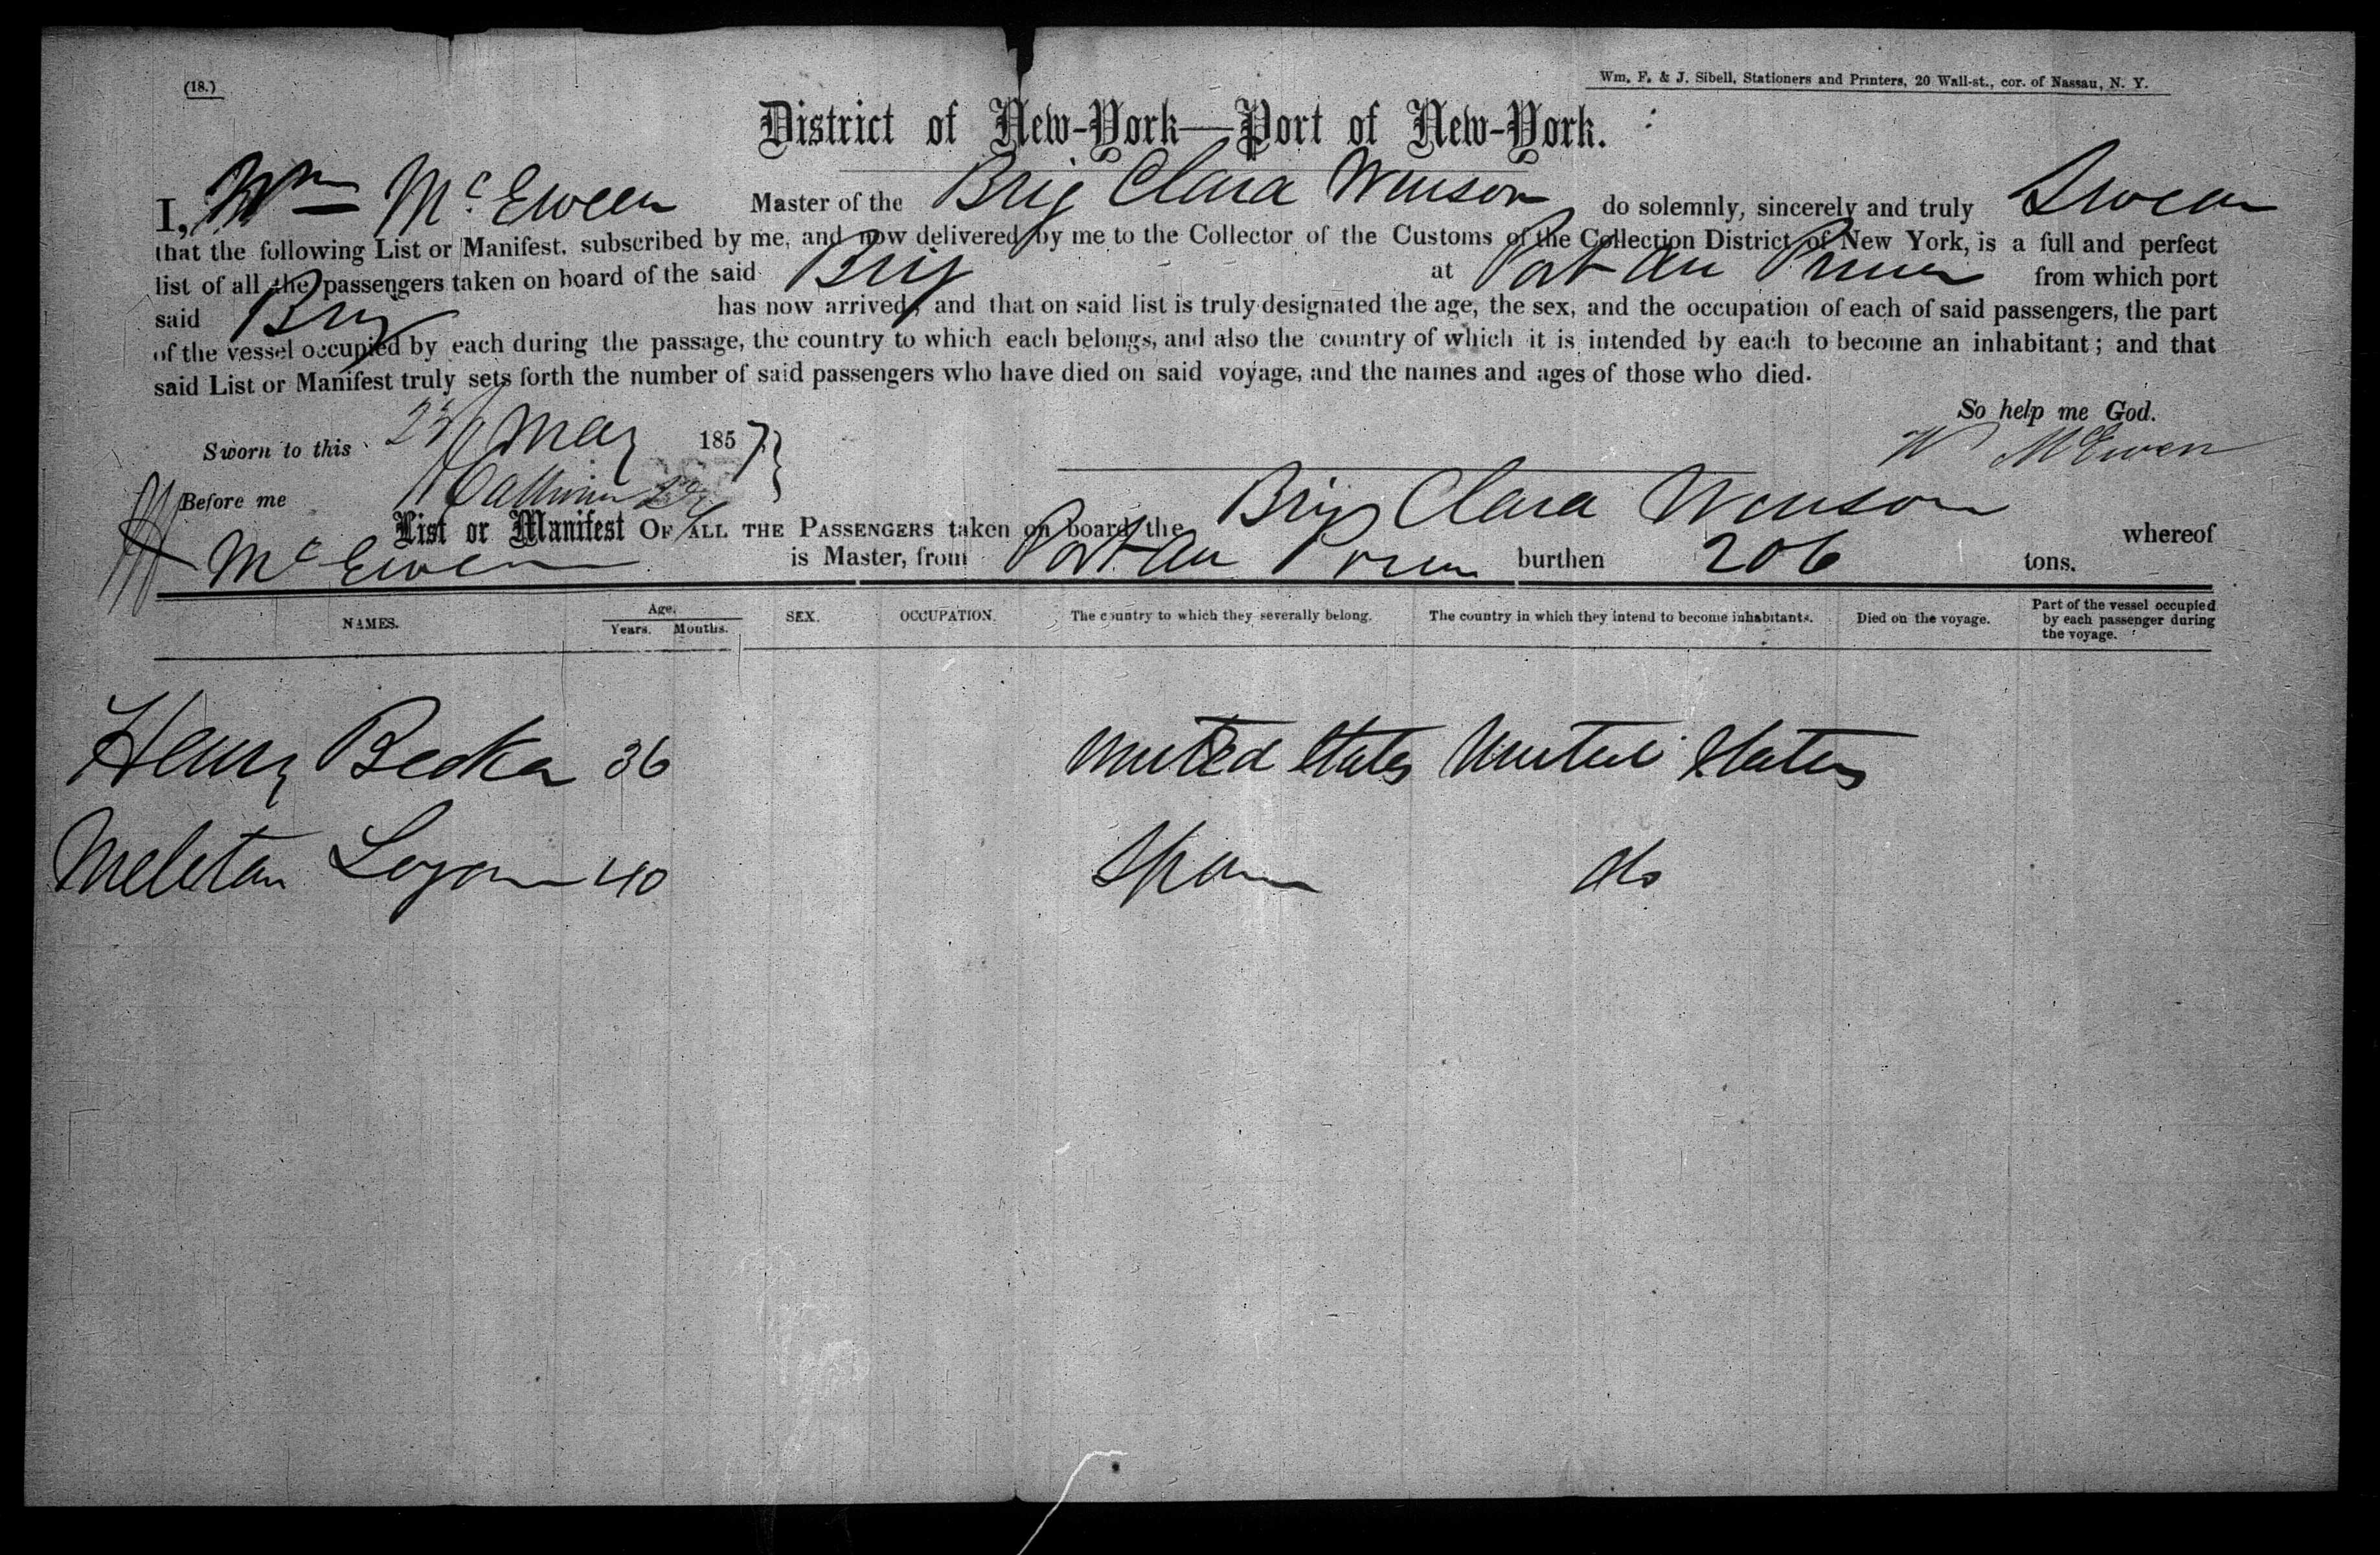 (18.)
Wm. F. & J. Sibell, Stationers and Printers, 20 Wall-st., cor. of Nassau, N. Y.
District of New-York—Port of New-York.
I, Wm McEwen Master of the Brig Clara Winson do solemnly, sincerely and truly Swear
that the following List or Manifest, subscribed by me, and now delivered by me to the Collector of the Customs of the Collection District of New York, is a full and perfect
list of all the passengers taken on board of the said Brig at Port au Prince from which port
said Brig has now arrived, and that on said list is truly designated the age, the sex, and the occupation of each of said passengers, the part
of the vessel occupied by each during the passage, the country to which each belongs, and also the country of which it is intended by each to become an inhabitant; and that
said List or Manifest truly sets forth the number of said passengers who have died on said voyage, and the names and ages of those who died.
So help me God.
Sworn to this May 1857
W McEwen
Before me
List or Manifest OF ALL THE PASSENGERS taken on board the Brig Clara Winson whereof
McEwen is Master, from Port au Prince burthen 206 tons.
NAMES. Age. Years. Months. SEX. OCCUPATION. The country to which they severally belong. The country in which they intend to become inhabitants. Died on the voyage. Part of the vessel occupied by each passenger during the voyage.
Henry Becker 36 United States United States
Meleton 40 Spain do